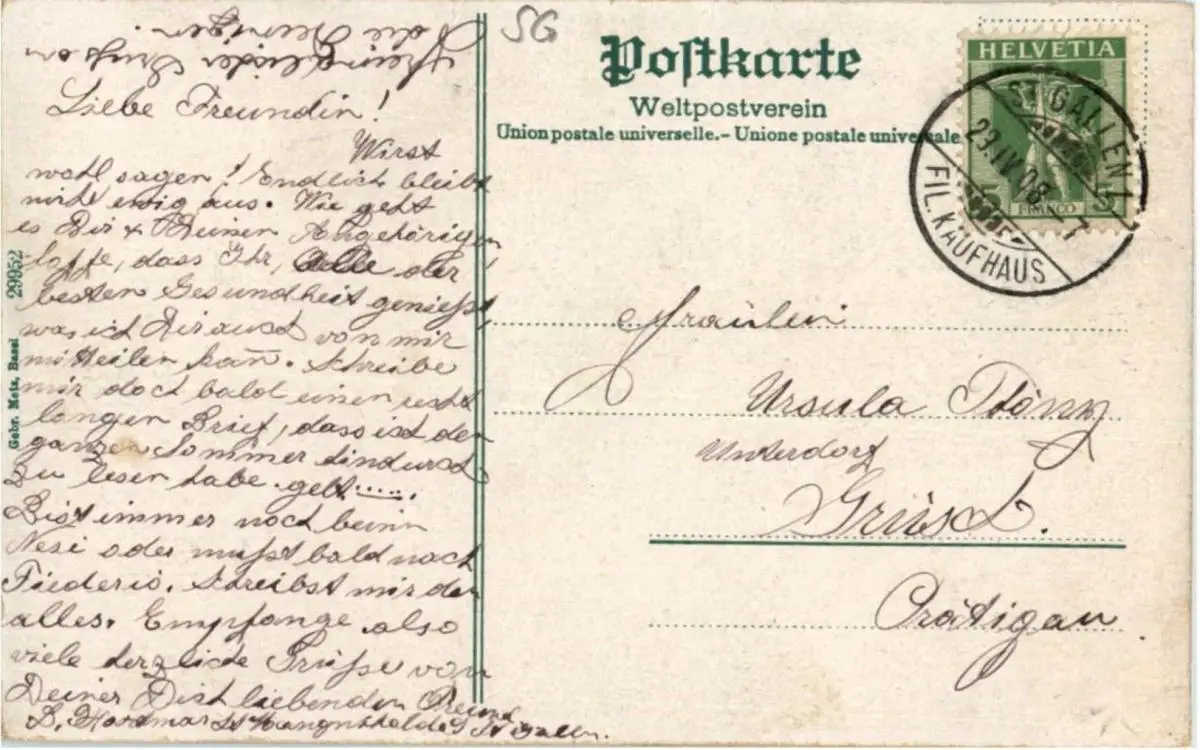 SG
Postkarte
Weltpostverein
Union postale universelle.- Unione postale universale
HELVETIA
5 5
FRANCO
ST. GALLEN 1
29.IV.08. 7
FIL. KAUFHAUS
Liebe Freundin!
Wirst
wohl sagen! Endlich bleibt
nicht ewig aus. Wie geht
es Dir & Deinen Angehörigen,
hoffe, dass Ihr, Alle der
besten Gesundheit genießt,
was ich Dir auch von mir
mitteilen kan̄. Schreibe
mir doch bald einen recht
langen Brief, dass ich den
ganzen Sommer hindurch
zu lesen habe. gelt......
Bist immer noch beim
Nesi oder mußt bald nach
Fiederis. Schreibst mir den
alles. Empfange also
viele herzliche Grüße von
Deiner Dich liebenden Freund
St. Gallen.
die
Fräulein
Ursula
Unterdorf
Grüsch.
Prätigau
Gebr. Metz, Basel 29952